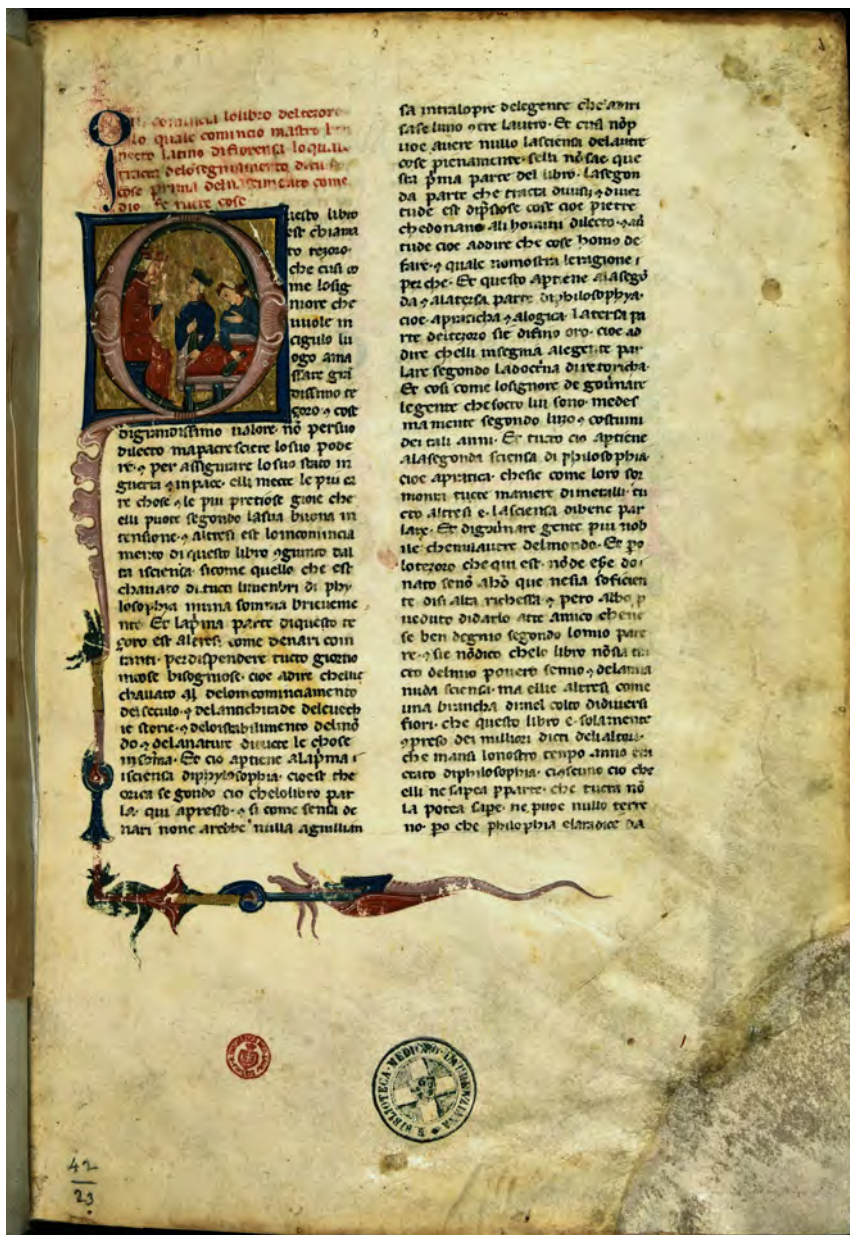 Qui comincia lolibro deltezoro
lo quale comincio mastro
latino di fiorensa loquale
tracta delosegnamento
cose prima delnascimento come
dio fe tucte cose
uesto libro
est chiama
to tezoro
che cusi co
me losig
niore che
uuole in
cigulo lu
ogo ama
ssare grã
dissimo te
zoro ⁊ cose
digrandissimo ualore nõ persuo
dilecto mapacresciere losuo pode
re ⁊ per assigurare lo suo stato in
guerra ⁊ inpace elli mecte le piu ca
re chose ⁊ le piu pretiose gioie che
elli puote segondo lasua buona in
tensione ⁊ altresi est loincomincia
mento di questo libro
ta iscienza sicome quello che est
chauato di tucti limenbri di phy
losophya inuna somma brieueme
nte Et lapima parte diquesto te
zoro est altresi come denari con
tanti perdispendere tucto giorno
incose bisogniose cioe adire chelli e
chauato delomcominciamento
delseculo ⁊ delantichitade deluech
ie storie ⁊ delostabilimento delmõ
do ⁊ delanature ditucte le chose
insoma Et cio aptiene alapima
isciensa diphylosophia cioest the
orica segondo cio chelolibro par
la qui apresso ⁊ si come sensa de
nari none arebbe nulla aguillian
sa intralopre delegente che
sase luno ⁊tre lautro Et cusi nõp
uoe auere nullo lasciensa delautre
cose pienamente selli nõsae que
sta pima parte del libro lasegon
da parte che tracta diuisi ⁊ diuer
tude est dipsiose cose cioe pietre
chedonano ali homini dilecto
tude cioe addire che cose homo de
fare ⁊ quale nomostra leragione
perche Et questo aptiene alasegõ
da ⁊ alatersa parte diphilosophya
cioe apraticha ⁊ alogica Latersa pa
rte deltezoro sie difino oro cioe ad
dire chelli insegnia alegente par
lare segondo ladoctrina diretoricha
Et cosi come losignore de gounare
legente chesocto lui sono medes
ma mente segondo luzo ⁊ costumi
dei tali anni Et tucto cio aptiene
alasegonda sciensa di philosophia
cioe apratica chesie come loro sor
monta tucte maniere dimetalli cu
cto altresi e lasciensa dibene par
lare Et digouunare gente piu nob
ile chenulautre delmondo Et po
lotezoro che qui est nõde esse do
nato senõ ahõ que nesia soficien
te disi alta richessa ⁊ pero albo p
ueduto didarlo atte amico chene
se ben degnio segondo lomio pare
re ⁊ sie nõdico chelo libro nõsia tra
cto delmio pouero senno ⁊ delamia
nuda sciensa ma ellie altresi come
una brancha dimel colto didiuersi
fiori che questo libro e solamente
⁊preso dei milliori dicti delialtori
che mansi lonostro tempo anno
ctato diphilosophia ciascuno cio che
elli ne sapea pparte che tucta nõ
la potea sape ne puoe nullo terre
no po che philophia claradice da
BIBLIOTECA MEDICEO LAURENZIANA
42
23